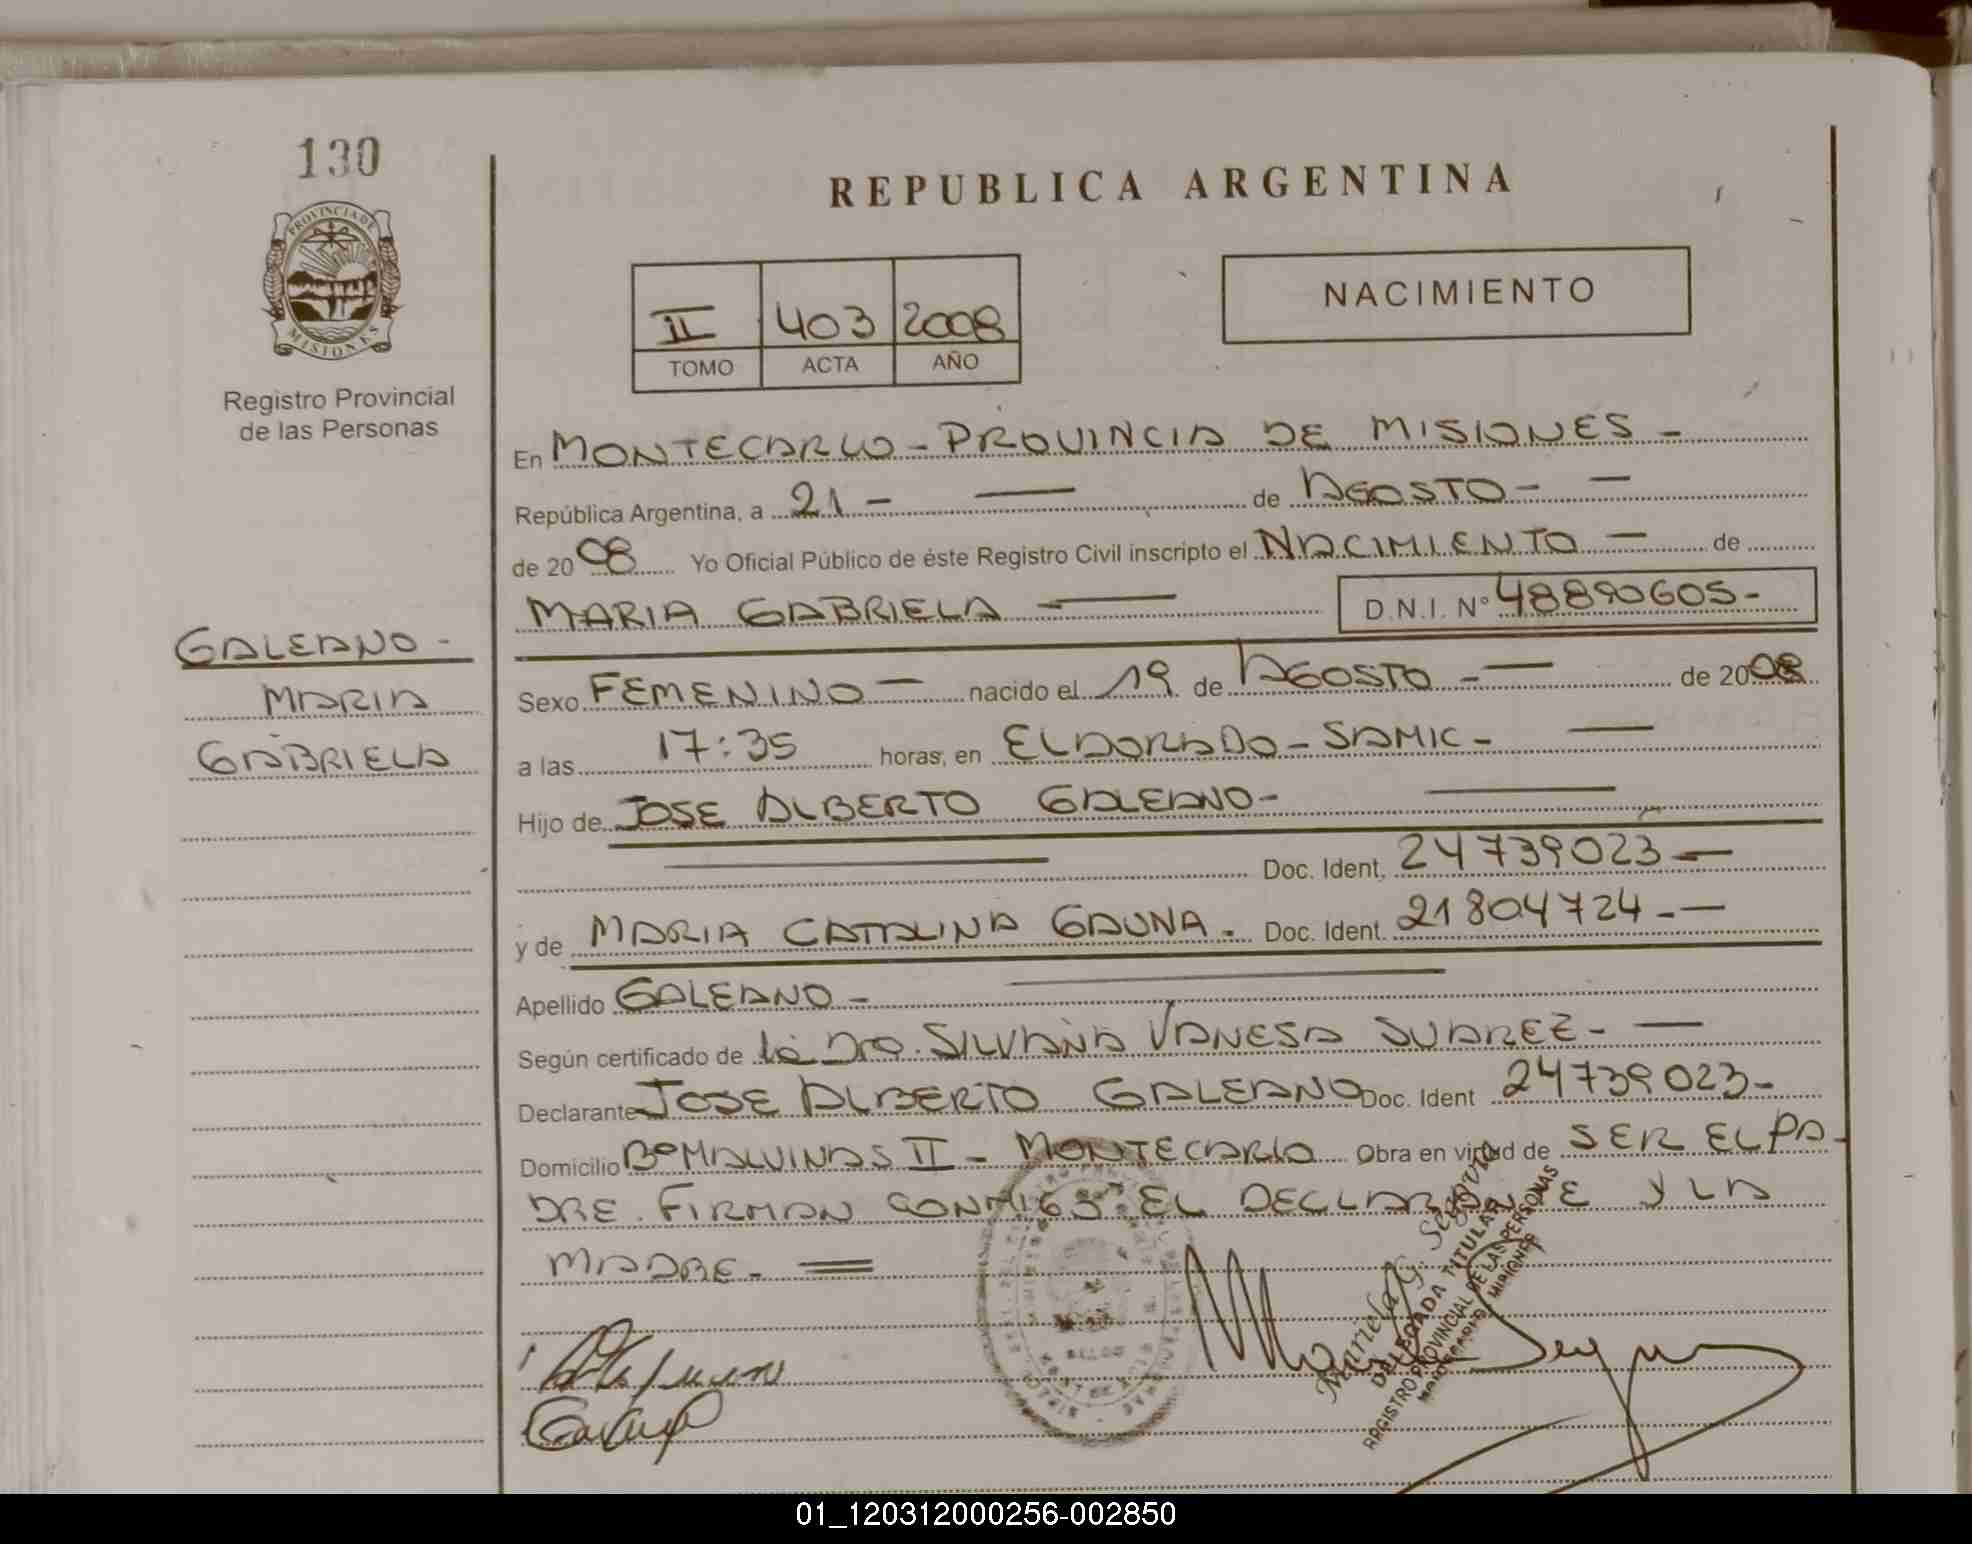 130
PROVINCIA DE
MISIONES
Registro Provincial
de las Personas
REPUBLICA ARGENTINA
II 403 2008
TOMO ACTA AÑO
NACIMIENTO
En MONTECARLO - PROVINCIA DE MISIONES -
República Argentina, a 21 - — de AGOSTO - —
de 20 08 Yo Oficial Público de éste Registro Civil inscripto el NACIMIENTO — de
MARIA GABRIELA - — D.N.I. N° 48890605-
GALEANO -
MARIA
GABRIELA
Sexo FEMENINO — nacido el 19 de AGOSTO - — de 2008
a las 17:35 horas, en ELDORADO - SAMIC - —
Hijo de JOSE ALBERTO GALEANO - —
— Doc. Ident. 24739023 —
y de MARIA CATALINA GAUNA. Doc. Ident. 21804724 - —
Apellido GALEANO - —
Según certificado de la Dra. SILVANA VANESA SUAREZ - —
Declarante JOSE ALBERTO GALEANO Doc. Ident 24739023-
Domicilio B° MALVINAS II - MONTECARLO Obra en virtud de SER EL PA-
DRE. FIRMAN CONMIGO EL DECLARANTE Y LA
MADRE - =
DELEGADA TITULAR
REGISTRO PROVINCIAL DE LAS PERSONAS
01_120312000256-002850